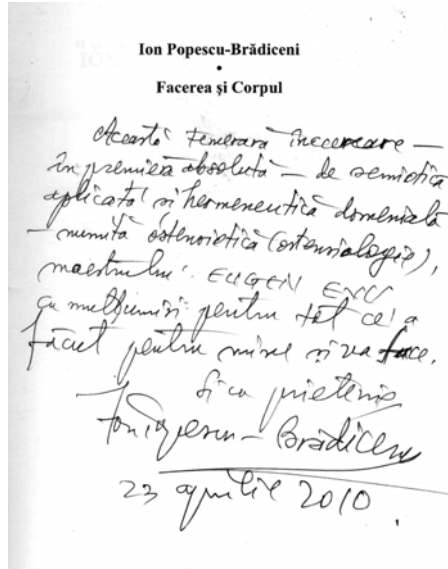 Ion Popescu-Brădiceni
•
Facerea și Corpul
Această temerară încercare –
în premieră absolută – de semiotică
aplicată și hermeneutică domenială
– numită ostenoiotica (ostensialogie),
maestrului EUGEN EVU
cu mulțumiri pentru tot ce a
făcut pentru mine și va face.
Și cu prietenie
Ion Popescu – Brădiceni
23 aprilie 2010.